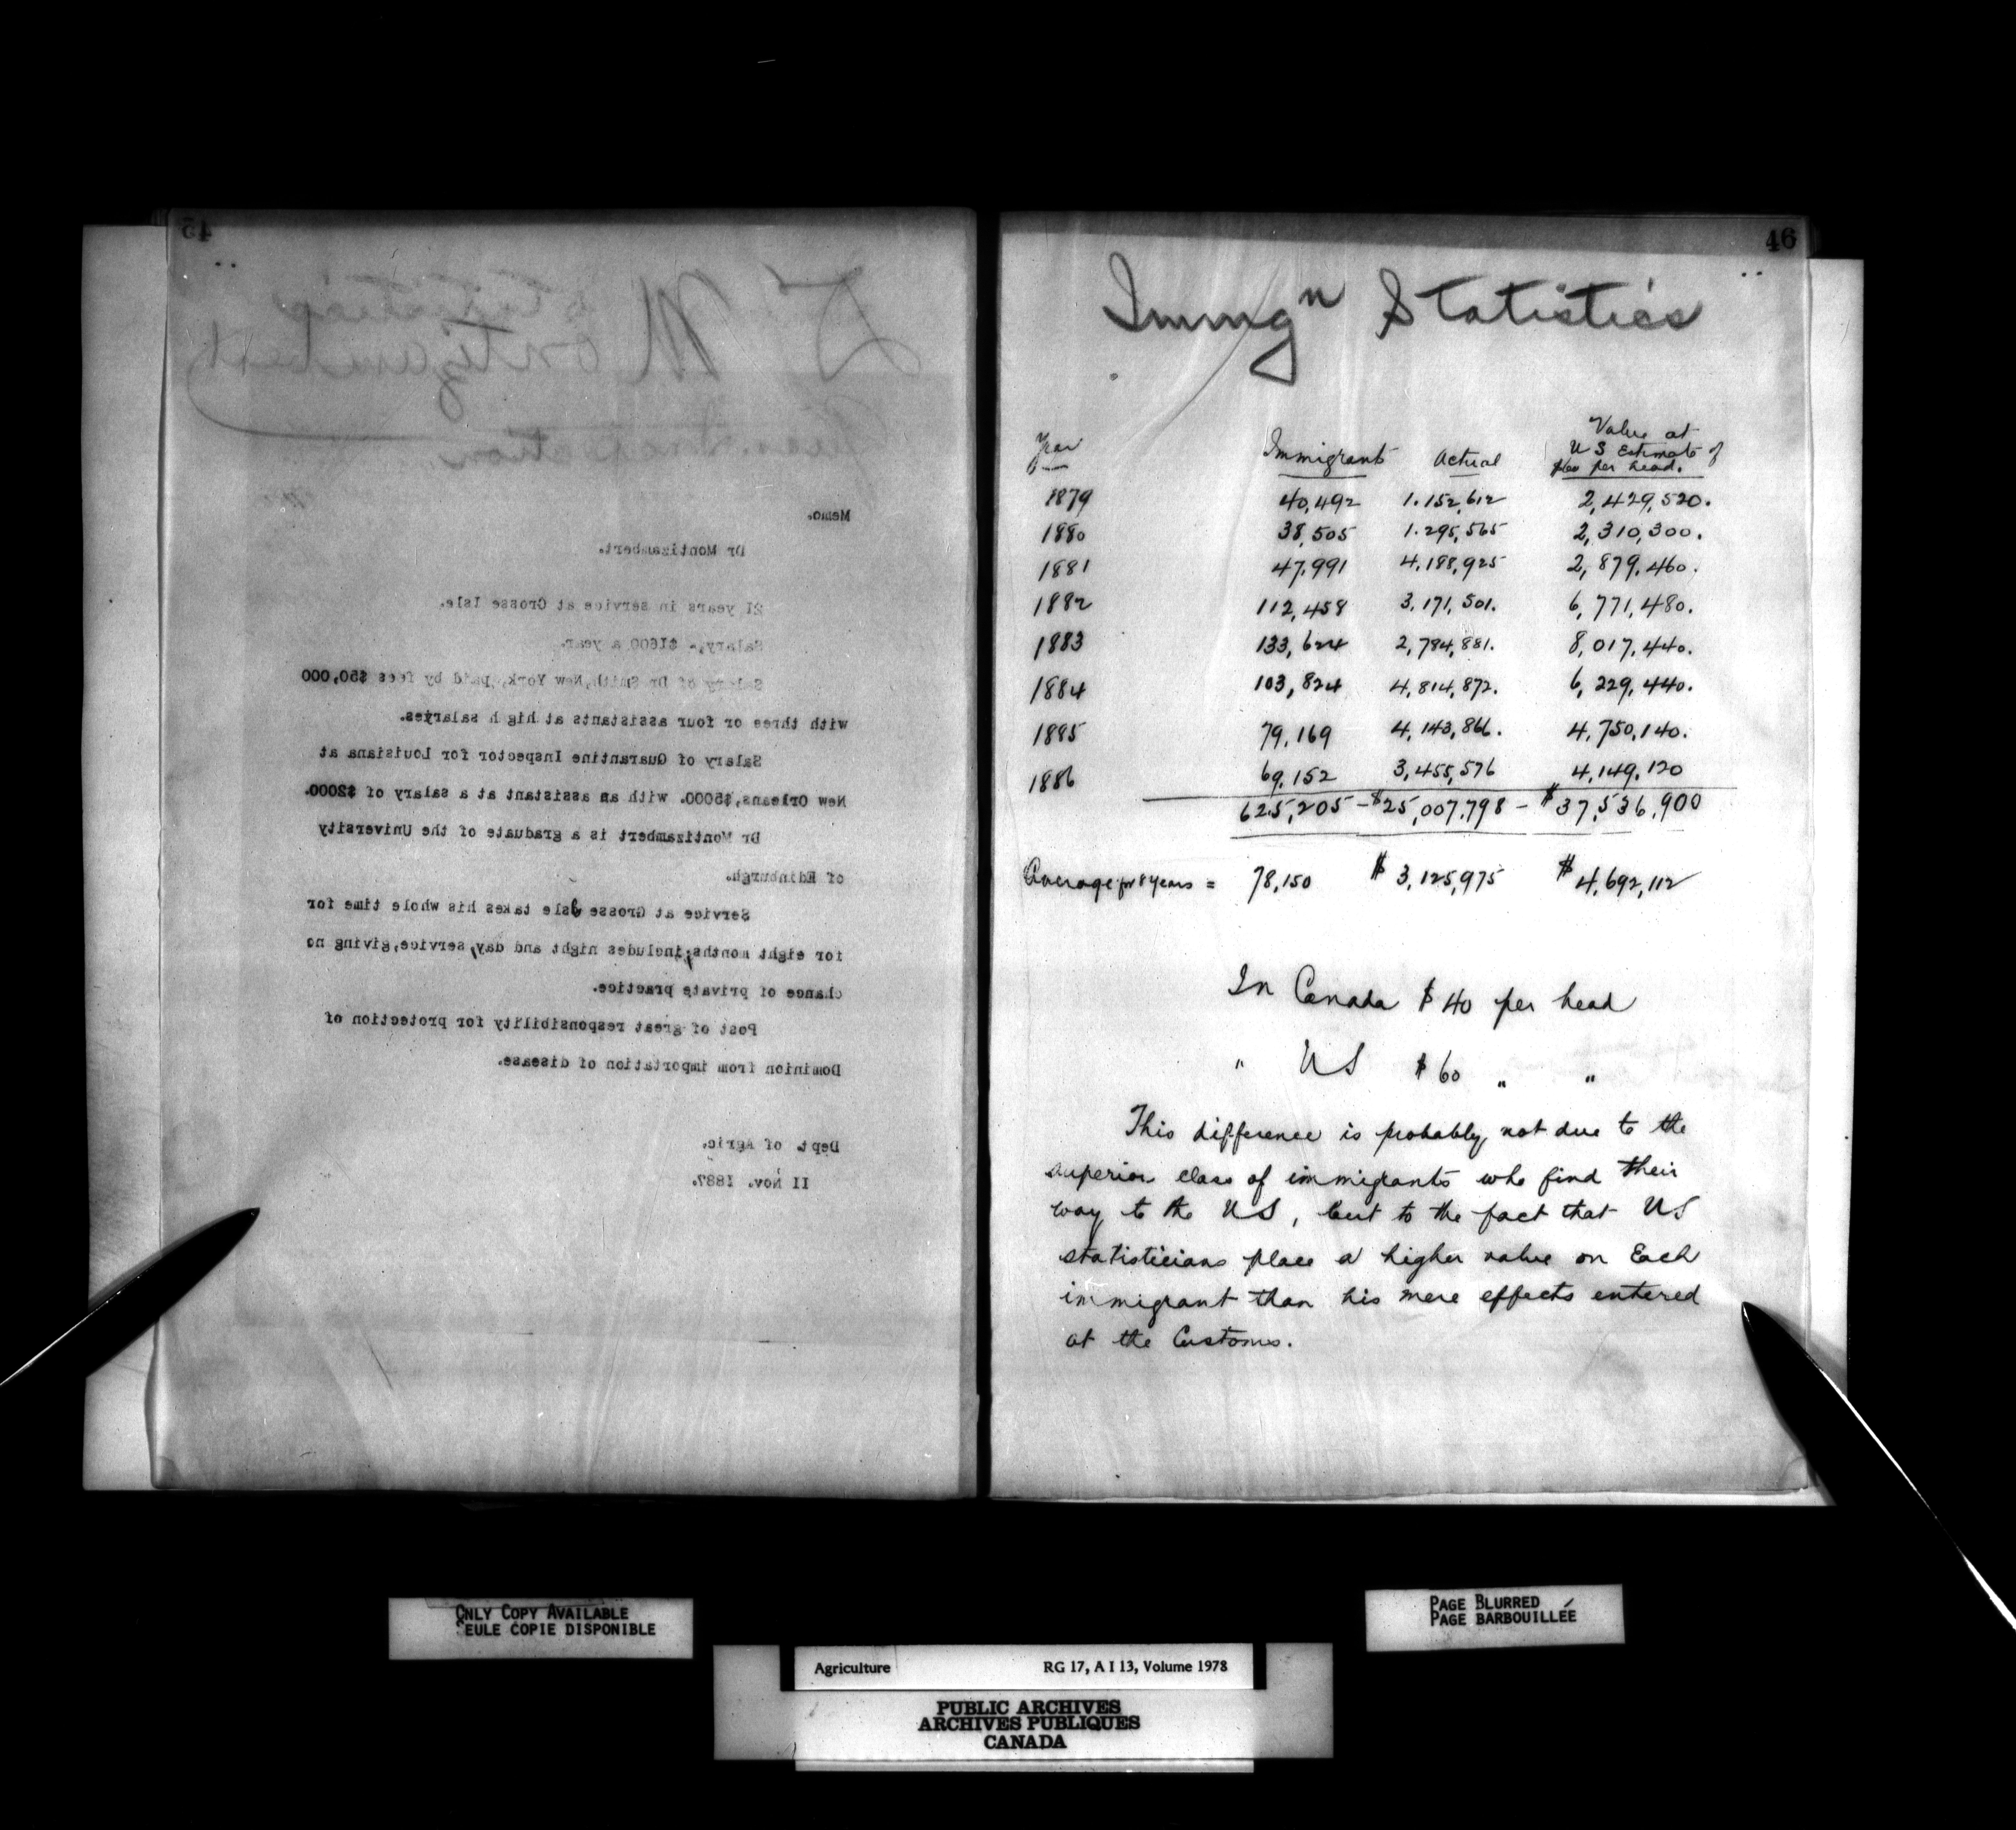 45
Dr Montizambert
Quarantine
Memo.
Dr Montizambert.
21 years in service at Grosse Isle.
Salary,- $1600 a year.
Salary of Dr Smith, New York, paid by fees $50,000
with three or four assistants at high salaries.
Salary of Quarantine Inspector for Louisiana at
New Orleans,$5000. with an assistant at a salary of $2000.
Dr Montizambert is a graduate of the University
of Edinburgh.
Service at Grosse Isle takes his whole time for
for eight months; includes night and day, service, giving no
chance of private practice.
Post of great responsibility for protection of
Dominion from importation of disease.
Dept. of Agric.
11 Nov. 1887.
46
Immgn Statistics
Year Immigrants Actual Value at US Estimate of $60 per head.
1879 40,492 1.152,612 2,429,520.
1880 38,505 1.295,565 2,310,300.
1881 47,991 4,188,925 2,879,460.
1882 112,458 3,171,501. 6,771,480.
1883 133,624 2,784,881. 8,017,440.
1884 103,824 4,814,872. 6,229,440.
1885 79,169 4,143,866. 4,750,140.
1886 69,152 3,455,576 4,149,120
625,205 - $25,007,798 - $37,536,900
Average for 8 years = 78,150 $3,125,975 $4,692,112
In Canada $40 per head
" US $60 " "
This difference is probably not due to the
superior class of immigrants who find their
way to the US, but to the fact that US
statisticians place a higher value on Each
immigrant than his mere effects entered
at the Customs.
ONLY COPY AVAILABLE
SEULE COPIE DISPONIBLE
PAGE BLURRED
PAGE BARBOUILLÉE
Agriculture RG 17, A I 13, Volume 1978
PUBLIC ARCHIVES
ARCHIVES PUBLIQUES
CANADA